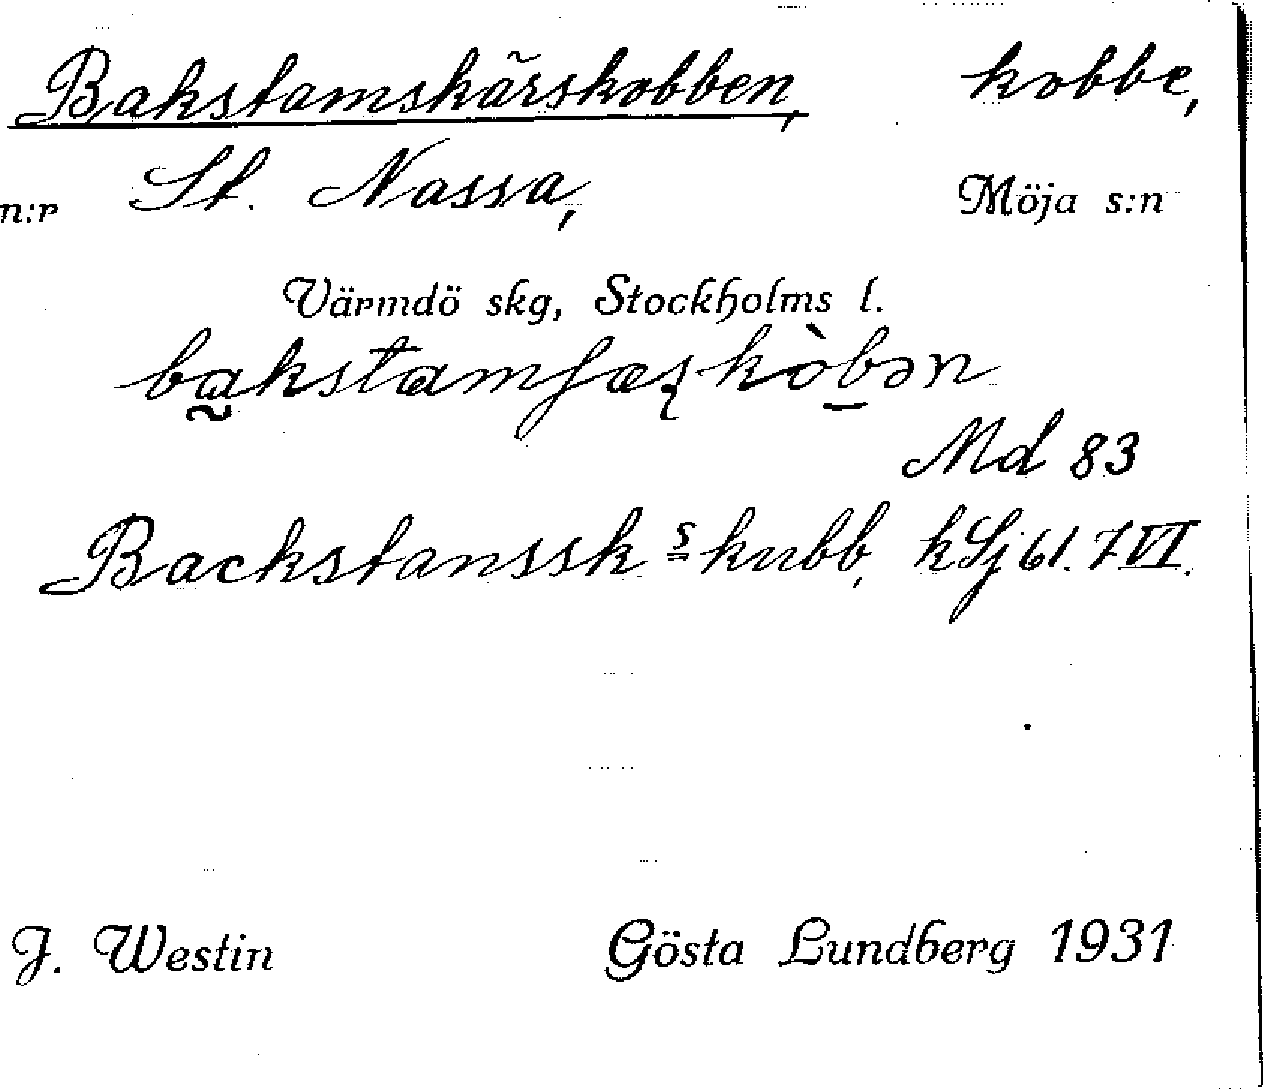 Bakstamskärskobben, kobbe,
n:r St. Nassa, Möja s:n
Värmdö skg, Stockholms l.
Md 83
Backstanssk s kubb, kSj 61. 7 VI.
J. Westin Gösta Lundberg 1931